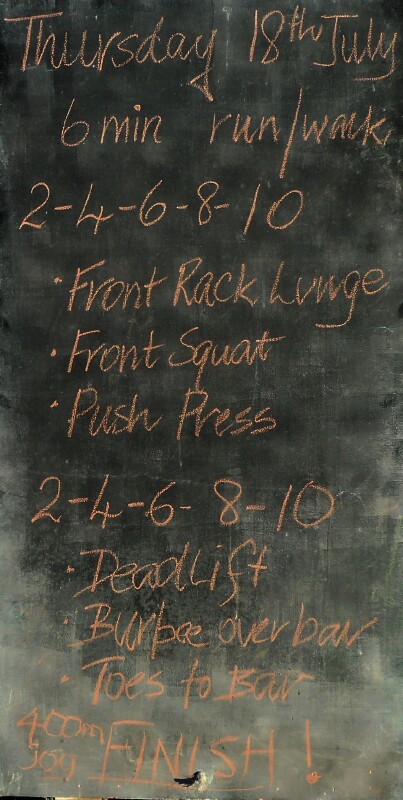 Thursday 18th July
6 min run/walk
2-4-6-8-10
· Front Rack Lunge
· Front Squat
· Push Press
2-4-6-8-10
· DeadLift
· Burpee over bar
· Toes to Bar
400m
joy FINISH!